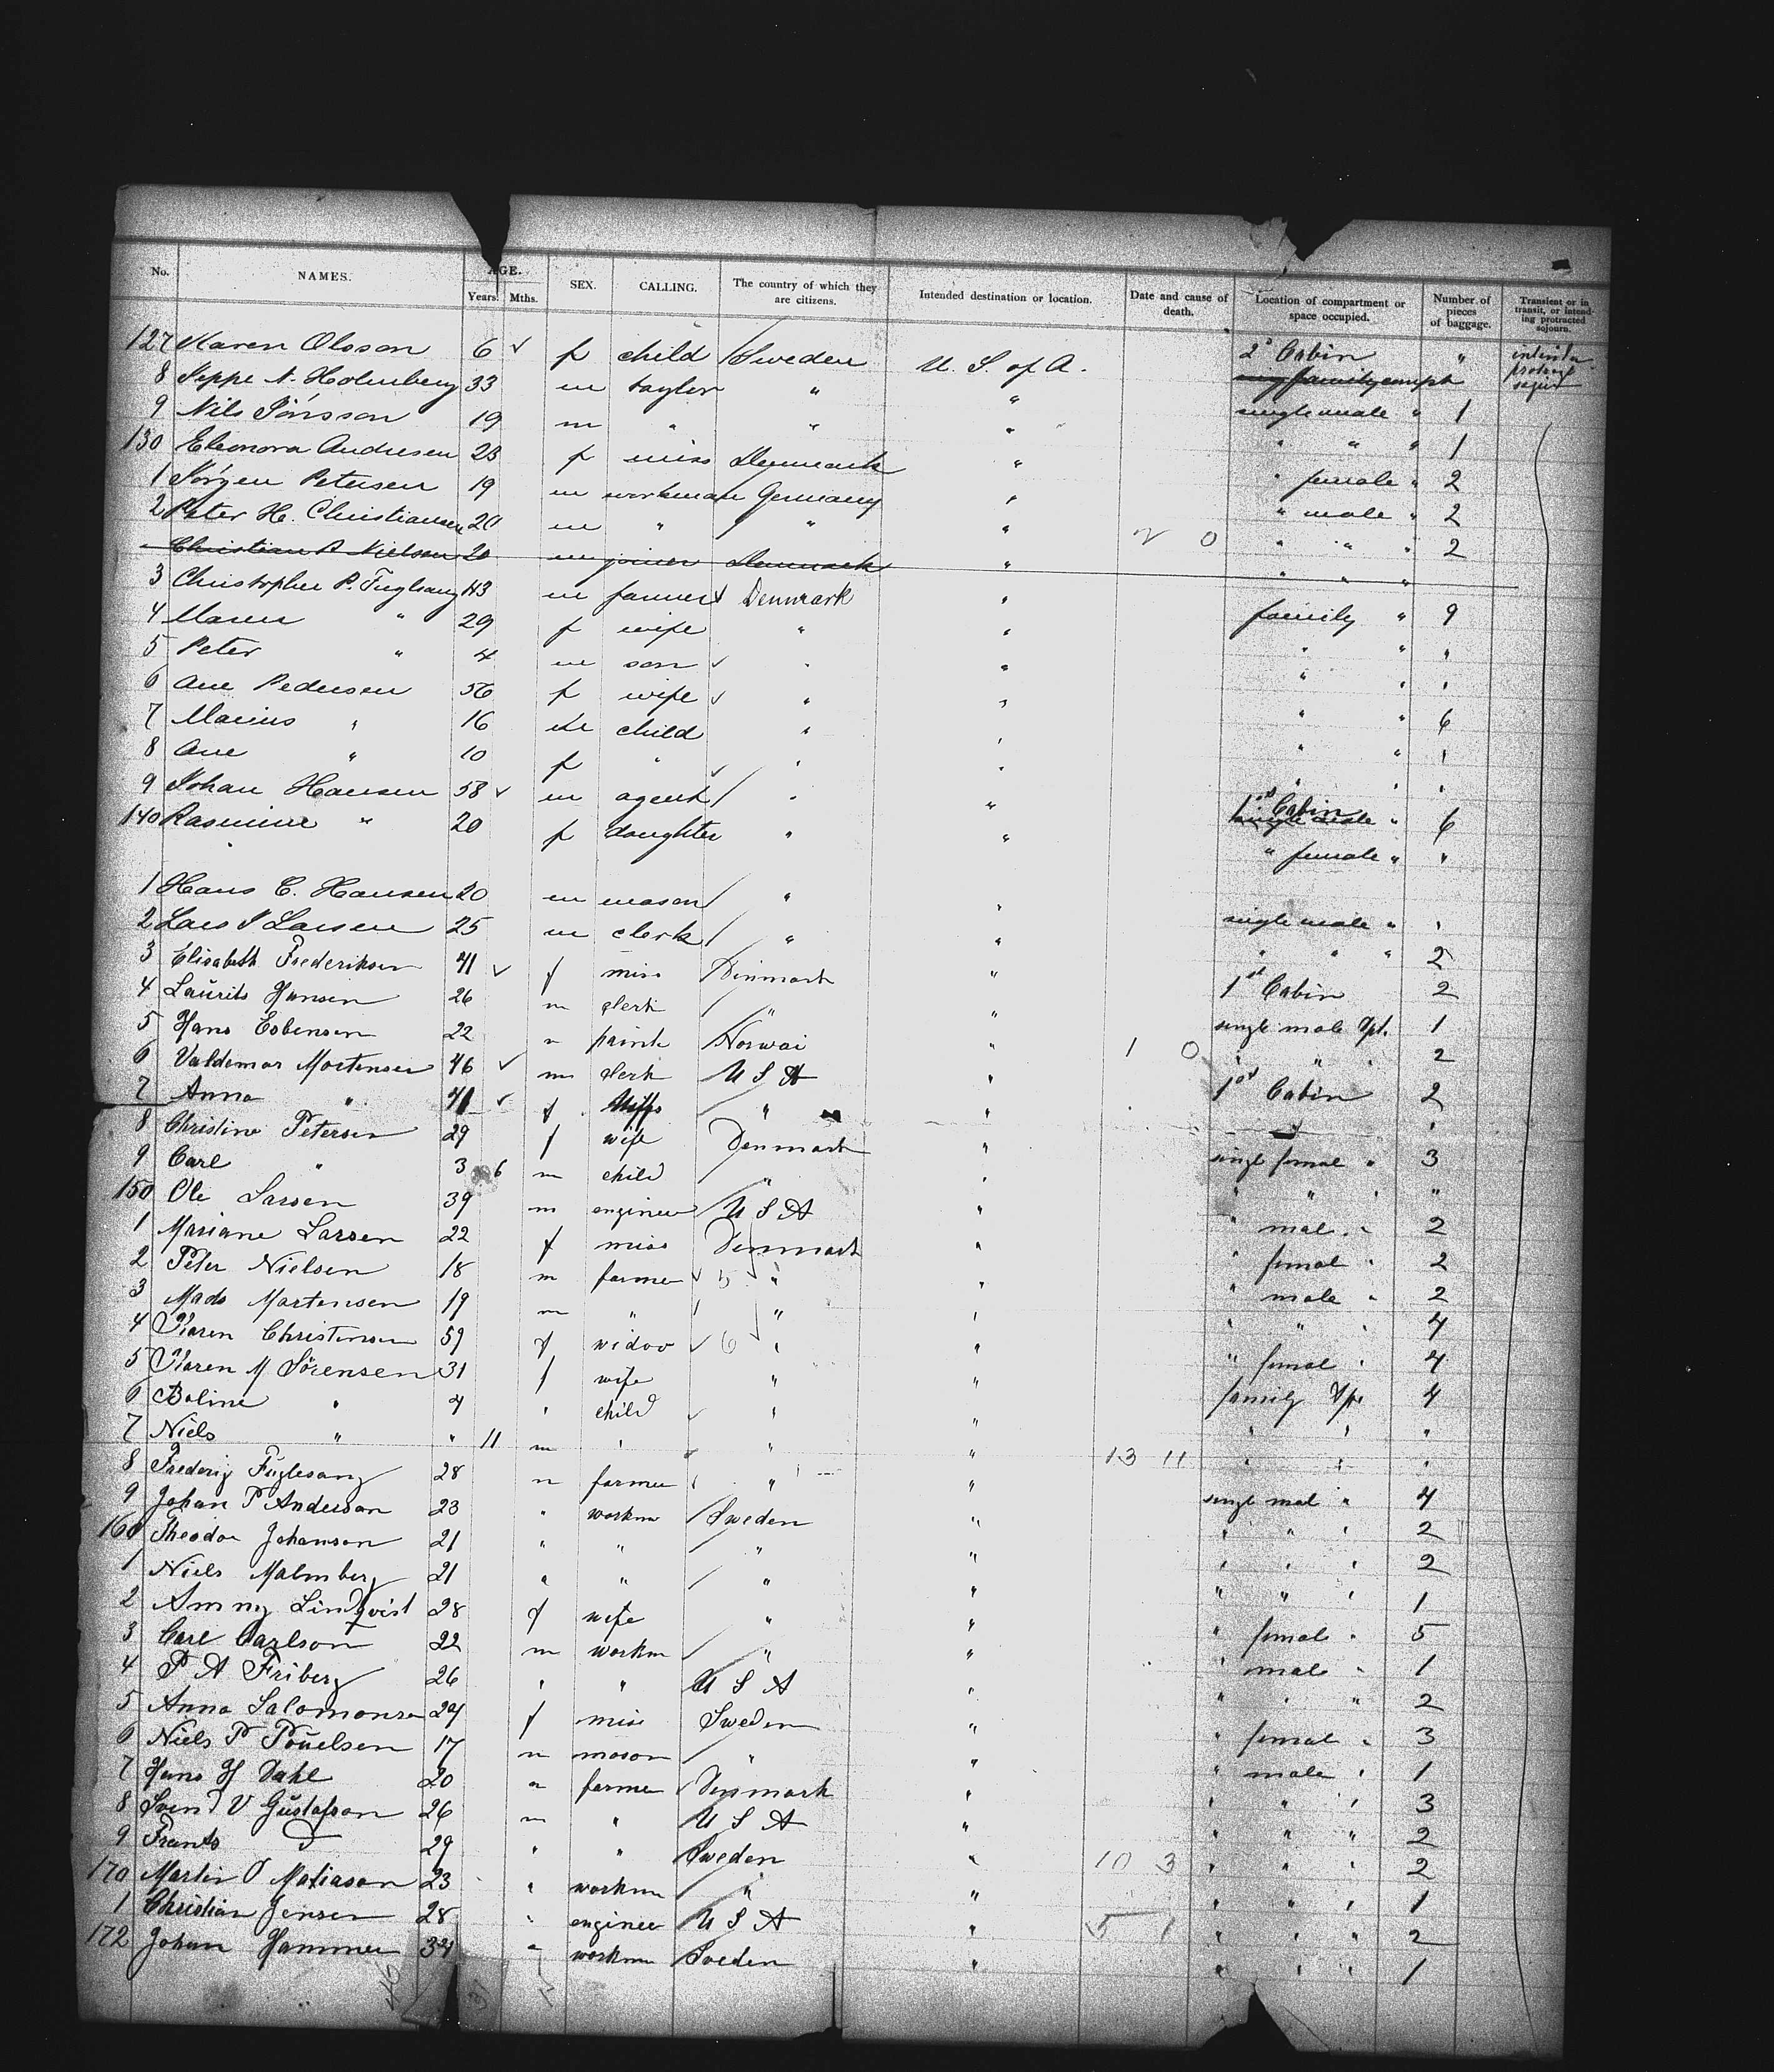 No. NAMES. AGE. Years. Mths. SEX. CALLING. The country of which they are citizens. Intended destination or location. Date and cause of death. Location of compartment or space occupied. Number of pieces of baggage. Transient or in transit, or intending protracted sojourn.
127 Karen Olsson 6 ✓ f child / Sweden U. S. of A. 2d Cabin "
8 Jeppe A. Holmberg 33 m taylor " " single male " 1
9 Nils Jönsson 19 m " " " " " " 1
130 Eleonora Andresen 23 f miss Denmark " " female " 2
1 Jörgen Petersen 19 m workman Germany " " male " 2
2 Peter H. Christiansen 20 m " " " 2 0 " " " 2
Christian P Nielsen 20 m joiner Denmark " " " "
3 Christopher P. Fuglsang 43 m farmer Denmark " family " 9
4 Maren " 29 f wife " " " " "
5 Peter " 4 m son ✓ " " " " "
6 Ane Pedersen 56 f wife ✓ " " " " 6
7 Marius " 16 m child " " " " "
8 Ane " 10 f " ✓ " " " " "
9 Johan Hansen 58 ✓ m agent / " " 1st Cabin " 6
140 Rasmine " 20 f daughter " " " female " "
1 Hans C. Hansen 20 m mason / " " single male " "
2 Lars J Larsen 25 m clerk / " " " " " 2
3 Elisabeth Frederiksen 41 ✓ f miss Denmark " 1st Cabin 2
4 Laurits Hansen 26 m clerk / " " single male Apt. 1
5 Hans Esbensen 22 " paint / Norwai " 1 0 " " " 2
6 Valdemar Mortensen 46 ✓ m clerk / U S A " 1st Cabin 2
7 Anna " 41 ✓ f wife / " " "
8 Christine Petersen 29 f wife Denmark " singl femal " 3
9 Carl " 3 6 m child / " " " " " "
150 Ole Larsen 39 m engineer / U S A " " mal " 2
1 Mariane Larsen 22 f miss Denmark " " femal " 2
2 Peter Nielsen 18 m farmer ✓ 5 " " " male " 2
3 Mads Mortensen 19 m " / " " " " " 4
4 Karen Christensen 59 f widow ✓ 6 " " " femal " 4
5 Karen M Sörensen 31 f wife " " family Apt 4
6 Boline " 4 " child ✓ " " " " "
7 Niels " " 11 m " ✓ " " 13 11 " " "
8 Frederig Fuglesang 28 m farmer " " singl mal " 4
9 Johan P Anderson 23 " workm / Sweden " " " " 2
160 Theodor Johanson 21 " " / " " " " " 2
1 Niels Malmberg 21 " " / " " " " " 1
2 Ammy Lindqvist 28 f wife " " " femal " 5
3 Carl Carlson 22 m workm / " " " male " 1
4 P A Friberg 26 " " / U S A " " " " 2
5 Anna Salomonsen 24 f miss Sweden " " femal " 3
6 Niels P Pouelsen 17 m mason / " " " male " 1
7 Hans H Dahl 20 " farmer ✓ Denmark " " " " 3
8 Svend V Gustafson 26 m " / U S A " " " " 2
9 Frants D 29 " " / Sweden " 10 3 " " " 2
170 Martin O Matiason 23 " workm / " " " " " 1
1 Christian Jensen 28 " engineer / U S A " 5 1 " " " 2
172 Johan Hammer 34 " workm / Sveden " " " " 1